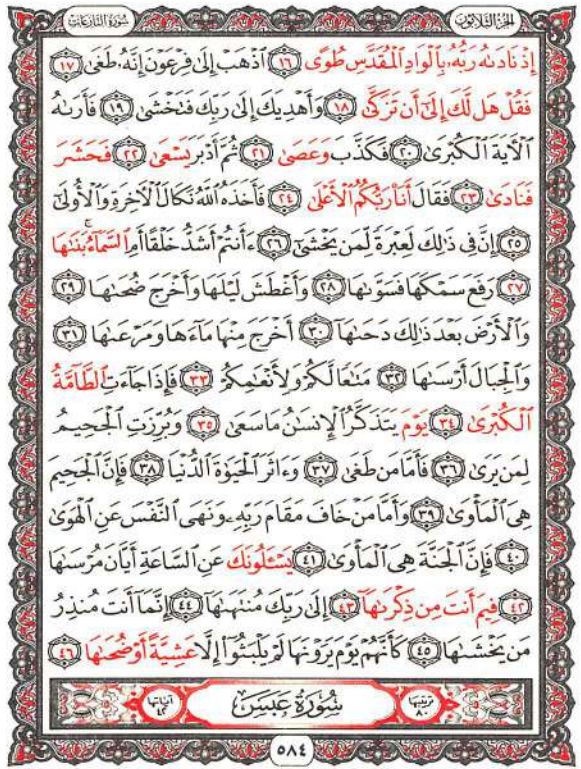 سُورَةُ النَّازِعَاتِ الجُزْءُ الثَّلَاثُونَ
إِذْ نَادَىٰهُ رَبُّهُۥ بِٱلْوَادِ ٱلْمُقَدَّسِ طُوًى ١٦ ٱذْهَبْ إِلَىٰ فِرْعَوْنَ إِنَّهُۥ طَغَىٰ ١٧
فَقُلْ هَل لَّكَ إِلَىٰٓ أَن تَزَكَّىٰ ١٨ وَأَهْدِيَكَ إِلَىٰ رَبِّكَ فَتَخْشَىٰ ١٩ فَأَرَىٰهُ
ٱلْـَٔايَةَ ٱلْكُبْرَىٰ ٢٠ فَكَذَّبَ وَعَصَىٰ ٢١ ثُمَّ أَدْبَرَ يَسْعَىٰ ٢٢ فَحَشَرَ
فَنَادَىٰ ٢٣ فَقَالَ أَنَا۠ رَبُّكُمُ ٱلْأَعْلَىٰ ٢٤ فَأَخَذَهُ ٱللَّهُ نَكَالَ ٱلْـَٔاخِرَةِ وَٱلْأُولَىٰٓ
٢٥ إِنَّ فِى ذَٰلِكَ لَعِبْرَةً لِّمَن يَخْشَىٰٓ ٢٦ ءَأَنتُمْ أَشَدُّ خَلْقًا أَمِ ٱلسَّمَآءُ ۚ بَنَىٰهَا
٢٧ رَفَعَ سَمْكَهَا فَسَوَّىٰهَا ٢٨ وَأَغْطَشَ لَيْلَهَا وَأَخْرَجَ ضُحَىٰهَا ٢٩
وَٱلْأَرْضَ بَعْدَ ذَٰلِكَ دَحَىٰهَآ ٣٠ أَخْرَجَ مِنْهَا مَآءَهَا وَمَرْعَىٰهَا ٣١
وَٱلْجِبَالَ أَرْسَىٰهَا ٣٢ مَتَٰعًا لَّكُمْ وَلِأَنْعَٰمِكُمْ ٣٣ فَإِذَا جَآءَتِ ٱلطَّآمَّةُ
ٱلْكُبْرَىٰ ٣٤ يَوْمَ يَتَذَكَّرُ ٱلْإِنسَٰنُ مَا سَعَىٰ ٣٥ وَبُرِّزَتِ ٱلْجَحِيمُ
لِمَن يَرَىٰ ٣٦ فَأَمَّا مَن طَغَىٰ ٣٧ وَءَاثَرَ ٱلْحَيَوٰةَ ٱلدُّنْيَا ٣٨ فَإِنَّ ٱلْجَحِيمَ
هِىَ ٱلْمَأْوَىٰ ٣٩ وَأَمَّا مَنْ خَافَ مَقَامَ رَبِّهِۦ وَنَهَى ٱلنَّفْسَ عَنِ ٱلْهَوَىٰ
٤٠ فَإِنَّ ٱلْجَنَّةَ هِىَ ٱلْمَأْوَىٰ ٤١ يَسْـَٔلُونَكَ عَنِ ٱلسَّاعَةِ أَيَّانَ مُرْسَىٰهَا
٤٢ فِيمَ أَنتَ مِن ذِكْرَىٰهَآ ٤٣ إِلَىٰ رَبِّكَ مُنتَهَىٰهَآ ٤٤ إِنَّمَآ أَنتَ مُنذِرُ
مَن يَخْشَىٰهَا ٤٥ كَأَنَّهُمْ يَوْمَ يَرَوْنَهَا لَمْ يَلْبَثُوٓا۟ إِلَّا عَشِيَّةً أَوْ ضُحَىٰهَا ٤٦
ترتيبها ٨٠ سُورَةُ عَبَسَ آياتها ٤٢
٥٨٤